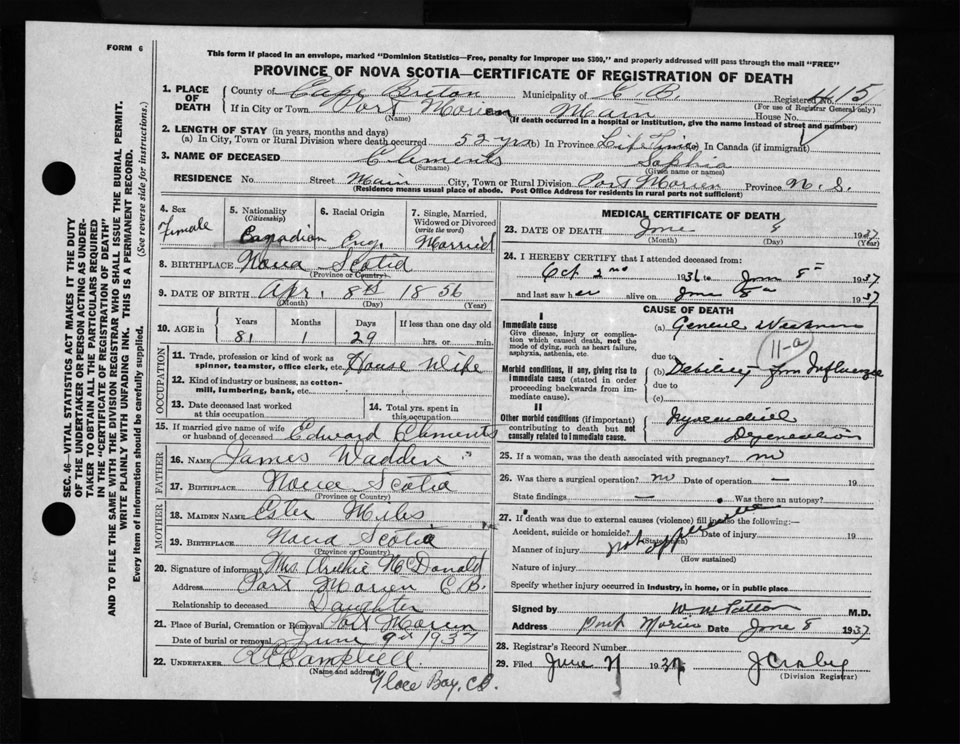 FORM 6
This form if placed in an envelope, marked "Dominion Statistics—Free, penalty for improper use $300," and properly addressed will pass through the mail "FREE"
PROVINCE OF NOVA SCOTIA—CERTIFICATE OF REGISTRATION OF DEATH
SEC. 46—VITAL STATISTICS ACT MAKES IT THE DUTY
OF THE UNDERTAKER OR PERSON ACTING AS UNDER-
TAKER TO OBTAIN ALL THE PARTICULARS REQUIRED
IN THE "CERTIFICATE OF REGISTRATION OF DEATH"
AND TO FILE THE SAME WITH THE DIVISION REGISTRAR WHO SHALL ISSUE THE BURIAL PERMIT.
WRITE PLAINLY WITH UNFADING INK. THIS IS A PERMANENT RECORD.
Every item of information should be carefully supplied.
(See reverse side for instructions.)
1. PLACE OF DEATH County of Cape Breton Municipality of C. B. Registered No. 1415
(For use of Registrar General only)
If in City or Town Port Morien Main House No.
(Name) (If death occurred in a hospital or institution, give the name instead of street and number)
2. LENGTH OF STAY (in years, months and days)
(a) In City, Town or Rural Division where death occurred 52 yrs (b) In Province Life Time (c) In Canada (if immigrant)
3. NAME OF DECEASED Clements Sophia
(Surname) (Given name or names)
RESIDENCE No. Street Main City, Town or Rural Division Port Morien Province N. S.
(Residence means usual place of abode. Post Office Address for residents in rural parts not sufficient)
4. Sex Female
5. Nationality (Citizenship) Canadian
6. Racial Origin Eng.
7. Single, Married, Widowed or Divorced (write the word) Married
8. BIRTHPLACE Nova Scotia
(Province or Country)
9. DATE OF BIRTH Apr. 8th 1856
(Month) (Day) (Year)
10. AGE in Years Months Days If less than one day old
81 1 29 hrs. or min.
OCCUPATION
11. Trade, profession or kind of work as spinner, teamster, office clerk, etc. House Wife
12. Kind of industry or business, as cotton-mill, lumbering, bank, etc.
13. Date deceased last worked at this occupation
14. Total yrs. spent in this occupation
15. If married give name of wife or husband of deceased Edward Clements
FATHER
16. NAME James Wadden
17. BIRTHPLACE Nova Scotia
(Province or Country)
MOTHER
18. MAIDEN NAME Miles
19. BIRTHPLACE Nova Scotia
(Province or Country)
20. Signature of informant Mrs. Archie McDonald
Address Port Morien C.B.
Relationship to deceased Daughter
21. Place of Burial, Cremation or Removal Port Morien
Date of burial or removal June 9th 1937
22. UNDERTAKER
(Name and address)
Glace Bay, C.B.
MEDICAL CERTIFICATE OF DEATH
23. DATE OF DEATH June 8 1937
(Month) (Day) (Year)
24. I HEREBY CERTIFY that I attended deceased from:
Oct 2nd 1936 to June 8th 1937
and last saw her alive on June 8th 1937
CAUSE OF DEATH
I
Immediate cause
Give disease, injury or complication which caused death, not the mode of dying, such as heart failure, asphyxia, asthenia, etc.
(a) General Weakness
11-a
due to
Morbid conditions, if any, giving rise to immediate cause (stated in order proceeding backwards from immediate cause).
(b) Debility from Influenza
due to
(c)
II
Other morbid conditions (if important) contributing to death but not causally related to immediate cause.
Myocardial
Degeneration
25. If a woman, was the death associated with pregnancy? no
26. Was there a surgical operation? no Date of operation — 19
State findings — Was there an autopsy?
27. If death was due to external causes (violence) fill in also the following:—
Accident, suicide or homicide? Date of injury 19
(State which)
Manner of injury not applicable
(How sustained)
Nature of injury
Specify whether injury occurred in industry, in home, or in public place
Signed by M.D.
Address Port Morien Date June 8 1937
28. Registrar's Record Number
29. Filed June 1937 J Crosby
(Division Registrar)